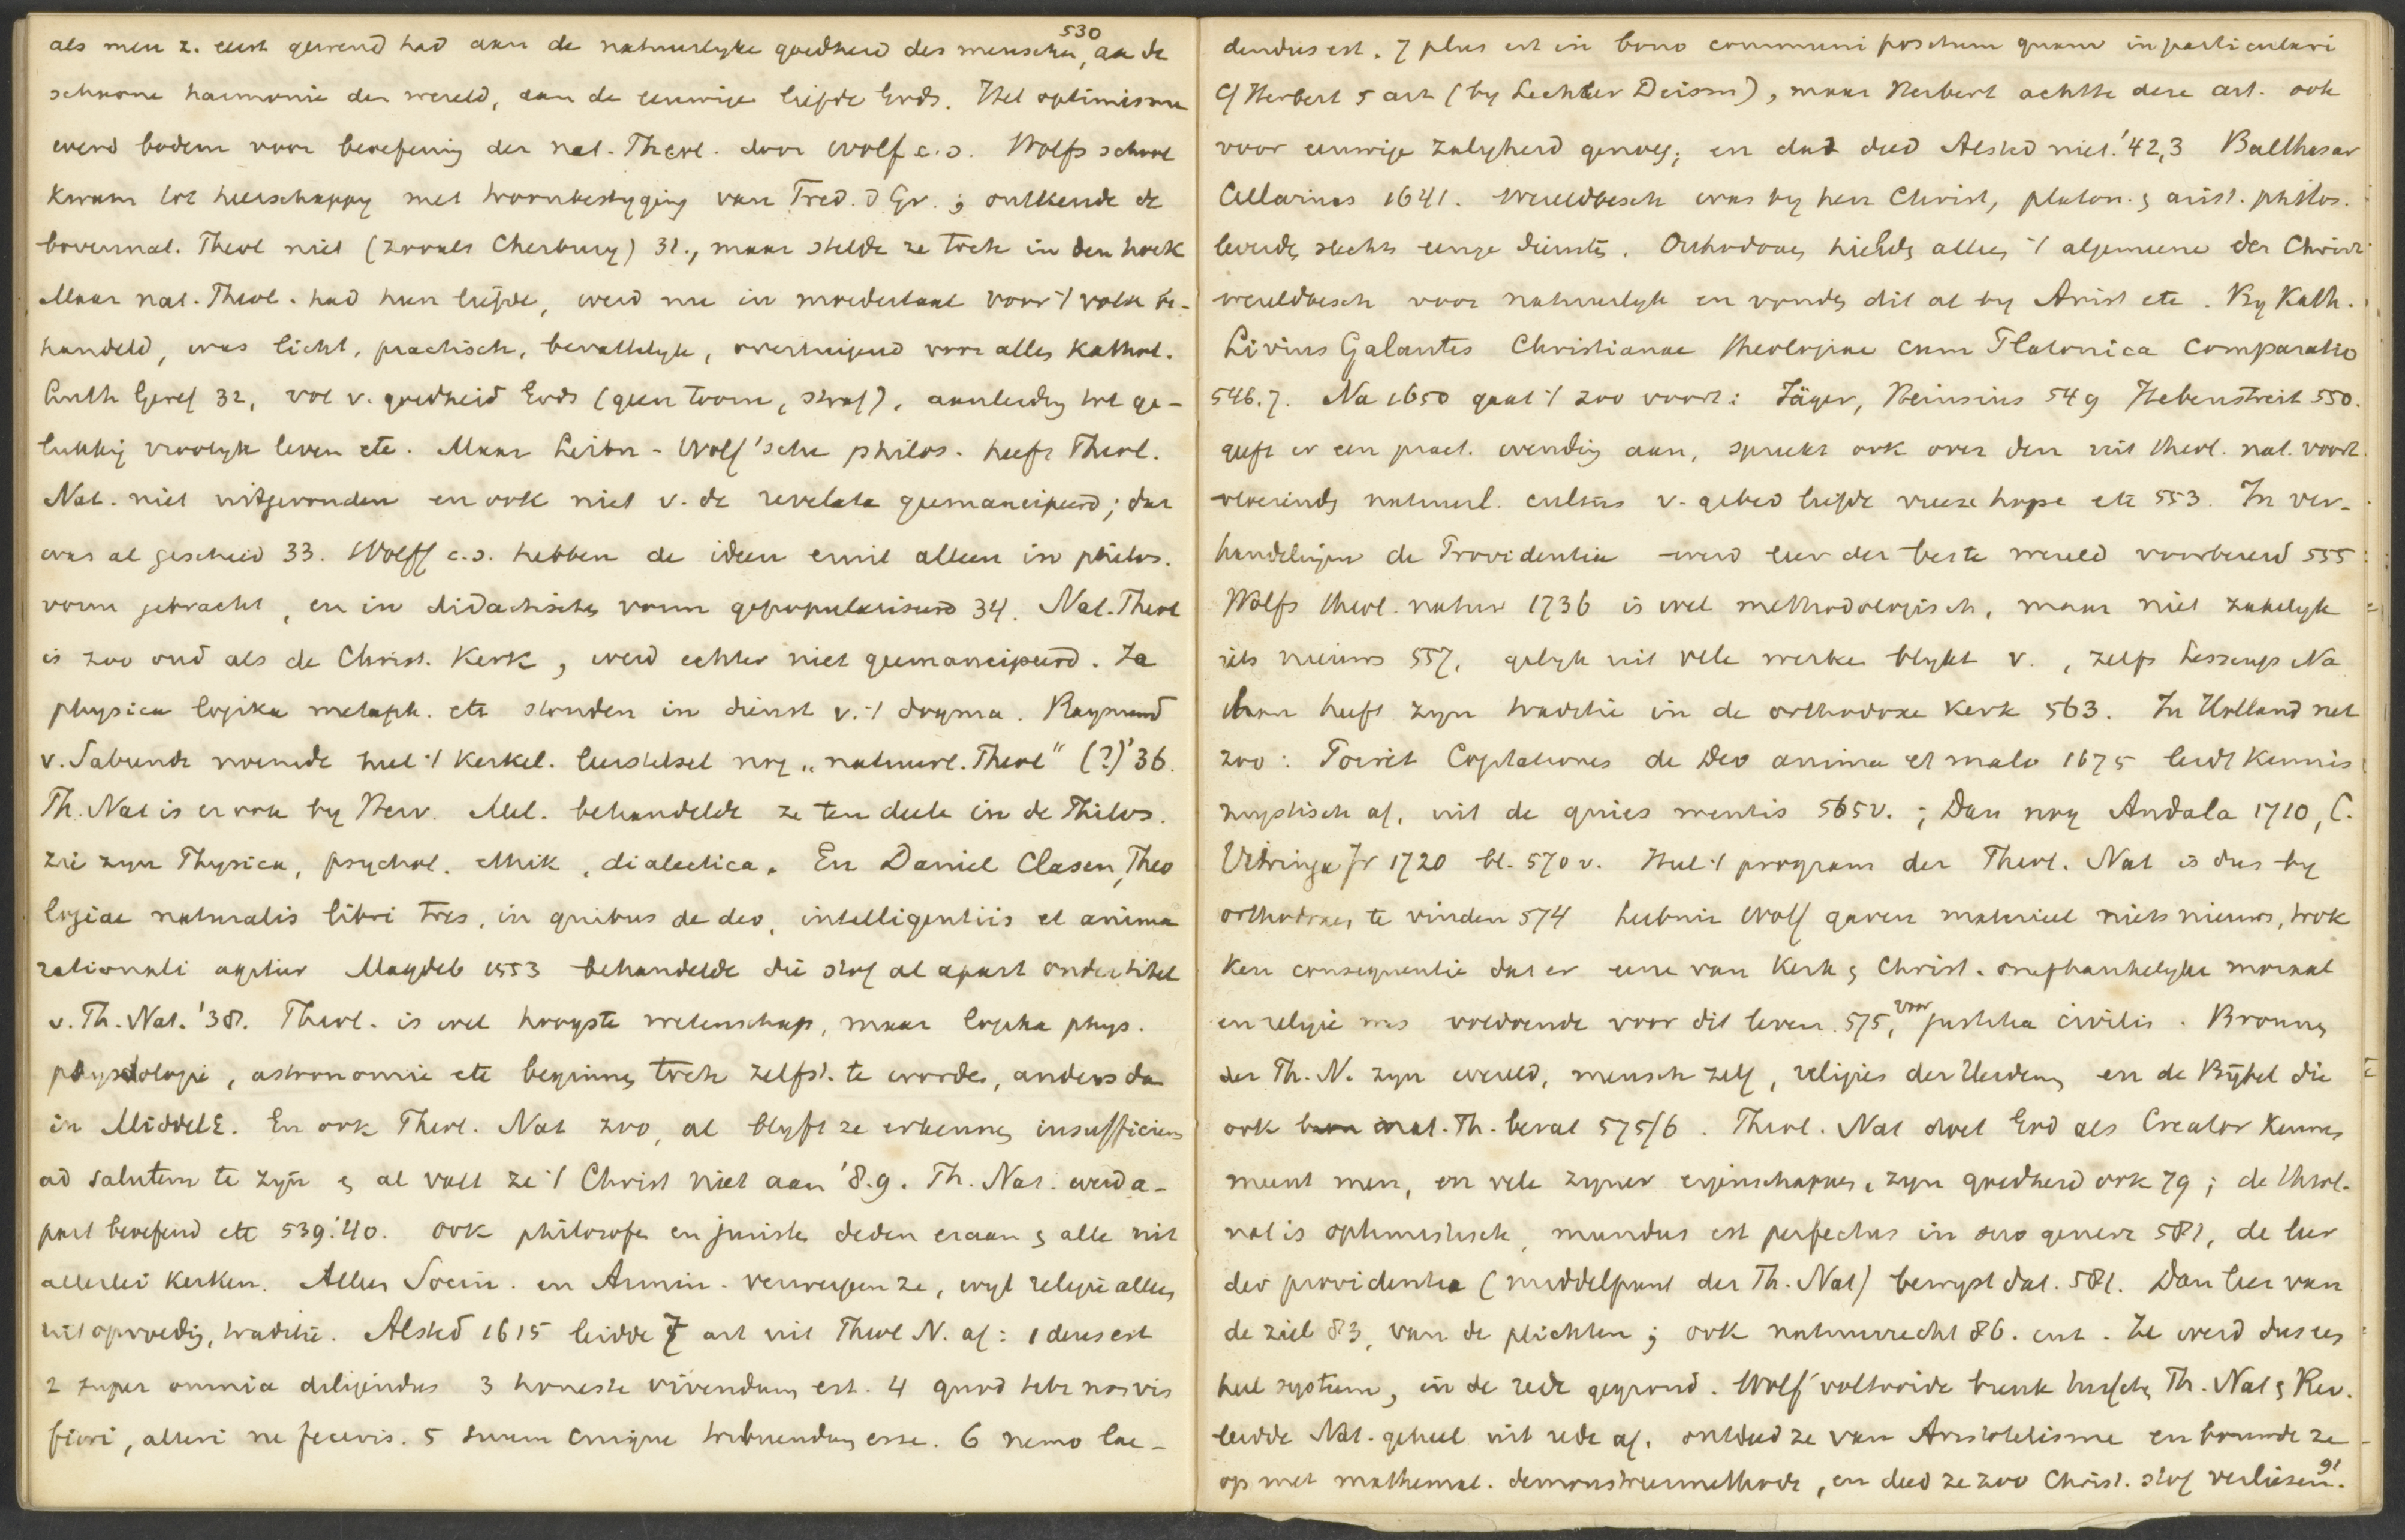 als men z. eerst gewend had aan de natuurlyke goedheid des menschen,530 aan de
schoone harmonie der wereld, aan de eeuwige liefde Gods. Het optimisme
werd bodem voor beoefening der nat. Theol. door Wolf c.s. Wolfs school
kwam tot heerschappy met troonbestyging van Fred. d Gr.; ontkende de
bovennat. Theol niet (zooals Cherbury) 31., maar stelde ze toch in den hoek
Maar nat. Theol. had hun liefde, werd nu in moedertaal voor 't volk be-
handeld, was licht, practisch, bevattelyk, overtuigend voor allen Kathol.
Luth Geref 32, vol v. goedheid Gods (geen toorn, straf), aanleiding tot ge-
lukkig vroolyk leven etc. Maar Leibn-Wolf'sche philos. heeft Theol.
Nat. niet uitgevonden en ook niet v. de revelata geëmancipeerd; dat
was al gescheid 33. Wolff c.s. hebben de ideen eruit alleen in philos.
vorm gebracht, en in didactischen vorm gepopulariseerd 34. Nat. Theol
is zoo oud als de Christ. Kerk, werd echter niet geemancipeerd. Ja
physica logika metaph. etc stonden in dienst v. 't dogma. Raymund
v. Sabunde noemde heel 't Kerkel. leerstelsel nog „naturl. Theol" (?) '36.
Th. Nat is er ook by Herv. Mel. behandelde ze ten deele in de Philos.
zie zyn Physica, psychol. ethik, dialectica. En Daniel Clasen, Theo
logiae naturalis libri tres, in quibus de deo, intelligentiis et anima
rationali agitur Magdeb 1553 behandelde die stof al apart onder titel
v. Th. Nat. '38. Theol. is wel hoogste wetenschap, maar logika phys.
physiologie, astronomie etc beginnen toch zelfst. te worden, anders dan
in MiddelE. En ook Theol. Nat zoo, al blyft ze erkennen insufficiens
ad salutem te zyn en al valt ze 't Christ niet aan '8.9. Th. Nat. werd a-
part beoefend etc 539.'40. Ook philosofen en juristen deden eraan en alle uit
allerlei Kerken. Alleen Socin. en Armin. verwerpen ze, wyl religie alleen
uit opvoeding, traditie. Alsted 1615 leidde 7 art uit Theol N. af: 1 deus est
2 super omnia diligendus 3 honeste vivendum est. 4 quod tibi non vis
fieri, alteri ne feceris. 5 suum cuique tribuendum esse. 6 nemo lae-
dendus est. 7 plus est in bono communi positum quam in particulari
Cf Herbert 5 art (by Lechler Deism), maar Herbert achtte deze art. ook
voor eeuwige zaligheid genoeg; en dat deed Alsted niet. '42,3 Balthasar
Cellarius 1641. Wereldbesch was by hen Christ, platon. en arist. philos.
leverden slechts eenige diensten. Orthodoxen hielden alles 't algemeene der Christ.
wereldbesch voor natuurlyk en vonden dit al by Arist etc. By Kath.
Livius Galantes Christianae theologiae cum Platonica comparatio
546.7. Na 1650 gaat 't zoo voort: Jäger, Reinsius 549 Hebenstreit 550.
geeft er een pract. wending aan, spreekt ook over den uit theol. nat. voort
vloeienden natuurl. cultus v. gebed liefde vreeze hope etc 553. In ver-
handelingen de Providentia werd leer der beste wereld voorbereid 555
Wolfs theol. natur 1736 is wel methodologisch, maar niet zakelyk
iets nieuws 557, gelyk uit vele werken blykt v., zelfs Lessings Na
than heeft zyn traditie in de orthodoxe Kerk 563. In Holland net
zoo: Poiret Cogitationes de Deo anima et malo 1675 leidt Kennis
mystisch af, uit de quies mentis 565v.; Dan nog Andala 1710, C.
Vitringa Jr 1720 bl. 570 v. Heel 't program der Theol. Nat is dus by
orthodoxen te vinden 574 Leibniz Wolf gaven materieel niets nieuws, trok
ken consequentie dat er eene van Kerk en Christ. onafhankelyke moraal
en religie was voldoende voor dit leven 575, voor justitia civilis. Bronnen
der Th. N. zyn wereld, mensch zelf, religies der Heidenen en de Bybel die
ook nat. Th. bevat 575/6. Theol. Nat doet God als Creator Kennen
meent men, en vele zyner eigenschappen, zyn goedheid ook 79; de theol.
nat is optimistisch, mundus est perfectus in suo genere 581, de leer
der providentia (middelpunt der Th. Nat) bewyst dat. 581. Dan leer van
de ziel 83, van de plichten; ook natuurrecht 86. ent. Ze werd dus een
heel systeem, in de rede gegrond. Wolf voltooide breuk tusschen Th. Nat en Rev.
leidde Nat. geheel uit rede af, ontdeed ze van Aristotelisme en bouwde ze
op met mathemat. demonstreermethode, en deed ze zoo Christ. stof verliezen.91